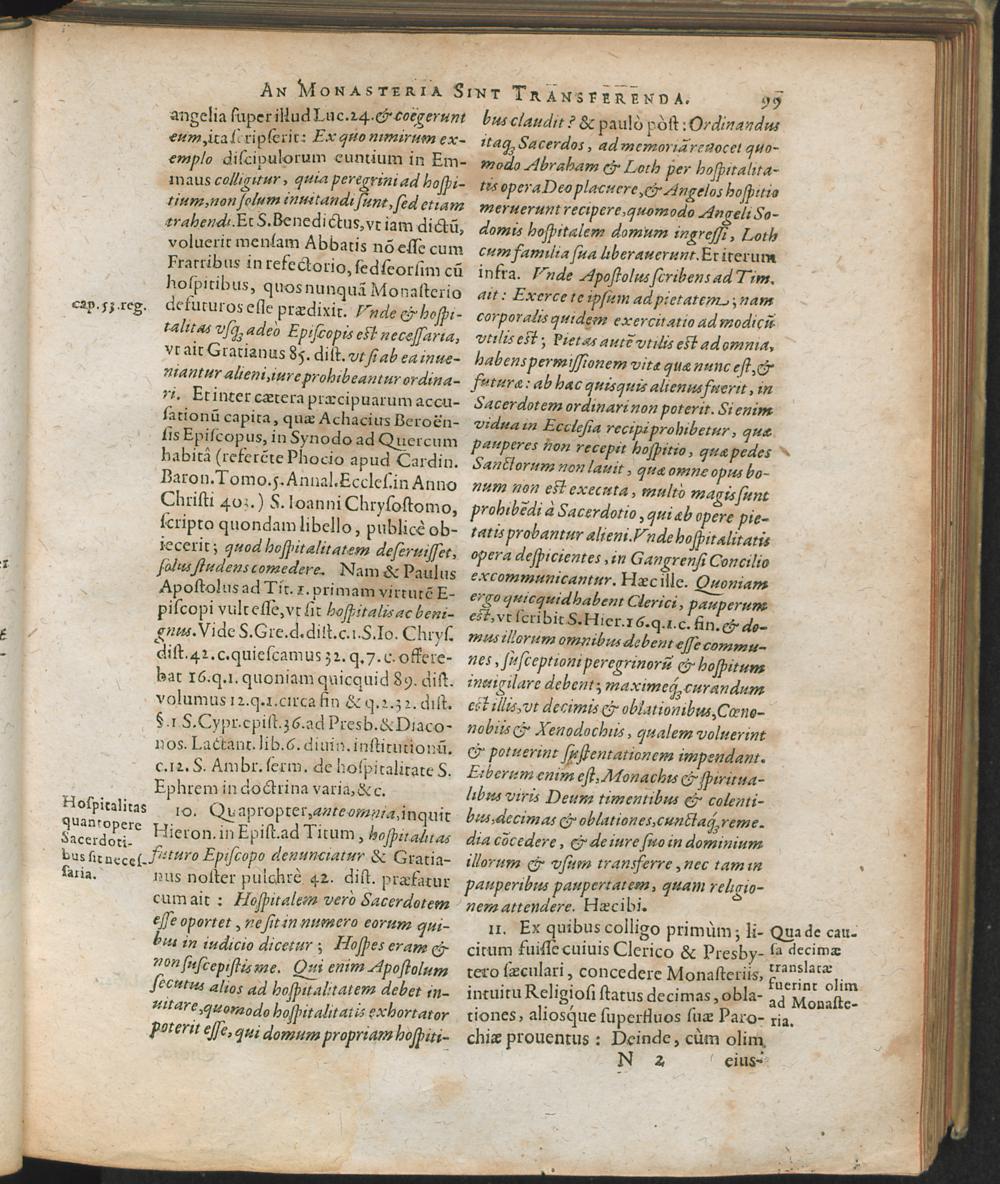 An Monasteria Sint Transferenda. 99
angelia super illud Luc.24. & coëgerunt
eum, ita scripserit: Ex quo nimirum ex-
emplo discipulorum euntium in Em-
maus colligitur, quia peregrini ad hospi-
tium, non solum inuitandi sunt, sed etiam
trahendi. Et S. Benedictus, vt iam dictũ,
voluerit mensam Abbatis nõ esse cum
Fratribus in refectorio, sed seorsim cũ
hospitibus, quos nunquã Monasterio
cap. 53. reg.
defuturos esse prædixit. Vnde & hospi-
talitas vsq; adeò Episcopis est necessaria,
vt ait Gratianus 85. dist. vt si ab ea inue-
niantur alieni, iure prohibeantur ordina-
ri. Et inter cætera præcipuarum accu-
sationũ capita, quæ Achacius Beroën-
sis Episcopus, in Synodo ad Quercum
habitâ (referẽte Phocio apud Cardin.
Baron. Tomo. 5. Annal. Eccles. in Anno
Christi 403.) S. Ioanni Chrysostomo,
scripto quondam libello, publicè ob-
iecerit; quod hospitalitatem deseruisset,
solus studens comedere. Nam & Paulus
Apostolus ad Tit. 1. primam virtutẽ E-
piscopi vult esse, vt sit hospitalis ac beni-
gnus. Vide S. Gre. d. dist. c. 1. S. Io. Chrys.
dist. 42. c. quiescamus 32. q. 7. c. offere-
bat 16. q. 1. quoniam quicquid 89. dist.
volumus 12. q. 1. circa fin & q. 2. 32. dist.
§. 1 S. Cypr. epist. 36. ad Presb. & Diaco-
nos. Lactant. lib. 6. diuin. institutionũ.
c. 12. S. Ambr. serm. de hospitalitate S.
Ephrem in doctrina varia, &c.
Hospitalitas
quantopere
Sacerdoti-
bus sit neces-
saria.
10. Quapropter, ante omnia, inquit
Hieron. in Epist. ad Titum, hospitalitas
futuro Episcopo denunciatur & Gratia-
nus noster pulchrè 42. dist. præfatur
cum ait: Hospitalem verò Sacerdotem
esse oportet, ne sit in numero eorum qui-
bus in iudicio dicetur; Hospes eram &
non suscepistis me. Qui enim Apostolum
secutus alios ad hospitalitatem debet in-
uitare, quomodo hospitalitatis exhortator
poterit esse, qui domum propriam hospiti-
bus claudit? & paulò pòst: Ordinandus
itaq; Sacerdos, ad memoriã reuocet quo-
modo Abraham & Loth per hospitalita-
tis opera Deo placuere, & Angelos hospitio
meruerunt recipere, quomodo Angeli So-
domis hospitalem domum ingressi, Loth
cum familia sua liberauerunt. Et iterum
infra. Vnde Apostolus scribens ad Tim.
ait: Exerce te ipsum ad pietatem; nam
corporalis quidem exercitatio ad modicũ
vtilis est; Pietas autẽ vtilis est ad omnia,
habens permissionem vitæ quæ nunc est, &
futuræ: ab hac quisquis alienus fuerit, in
Sacerdotem ordinari non poterit. Si enim
vidua in Ecclesia recipi prohibetur, quæ
pauperes non recepit hospitio, quæ pedes
Sanctorum non lauit, quæ omne opus bo-
num non est executa, multò magis sunt
prohibẽdi à Sacerdotio, qui ab opere pie-
tatis probantur alieni. Vnde hospitalitatis
opera despicientes, in Gangrensi Concilio
excommunicantur. Hæc ille. Quoniam
ergo quicquid habent Clerici, pauperum
est, vt scribit S. Hier. 16. q. 1. c. fin. & do-
mus illorum omnibus debent esse commu-
nes, susceptioni peregrinorũ & hospitum
inuigilare debent; maximeq́; curandum
est illis, vt decimis & oblationibus, Cœno-
nobiis & Xenodochiis, qualem voluerint
& potuerint sustentationem impendant.
Eiberum enim est, Monachis & spiritua-
libus viris Deum timentibus & colenti-
bus, decimas & oblationes, cunctaq; reme-
dia cõcedere, & de iure suo in dominium
illorum & vsum transferre, nec tam in
pauperibus paupertatem, quam religio-
nem attendere. Hæc ibi.
11. Ex quibus colligo primùm; li-
citum fuisse cuiuis Clerico & Presby-
tero sæculari, concedere Monasteriis,
intuitu Religiosi status decimas, obla-
tiones, aliosque superfluos suæ Paro-
chiæ prouentus: Deinde, cùm olim
Qua de cau-
sa decimæ
translatæ
fuerint olim
ad Monaste-
ria.
N 2 eius-